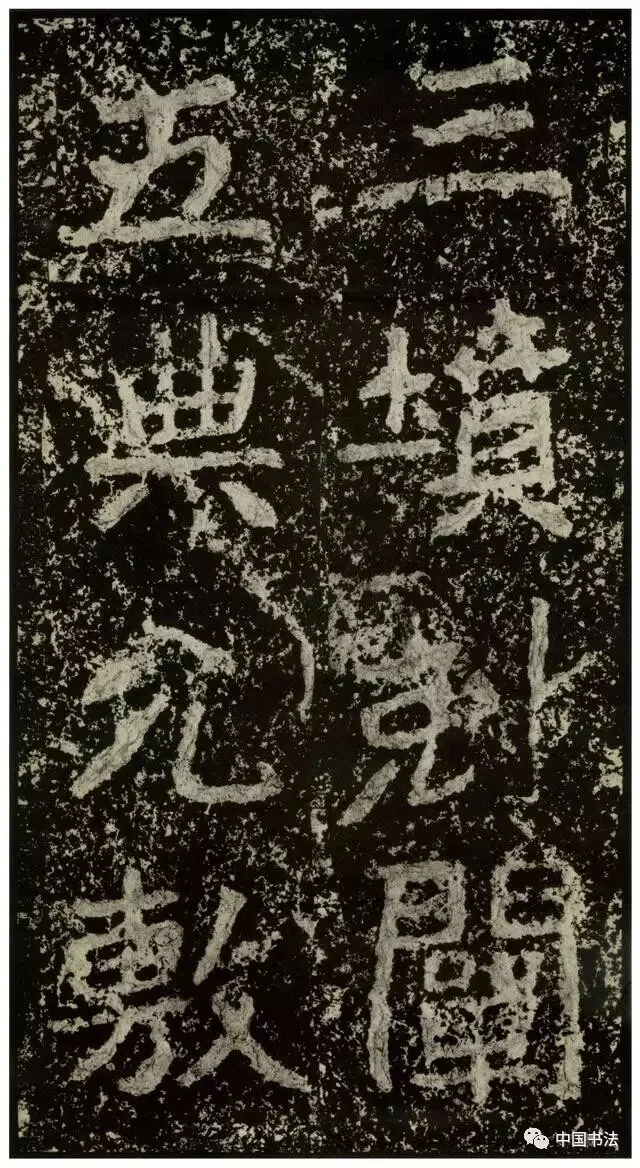 三墳剋闡
五典允敷
中国书法